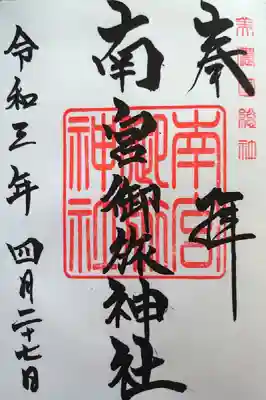 奉拝
美濃国総社
南宮御旅神社
南宮御旅神社
令和三年 四月二十七日